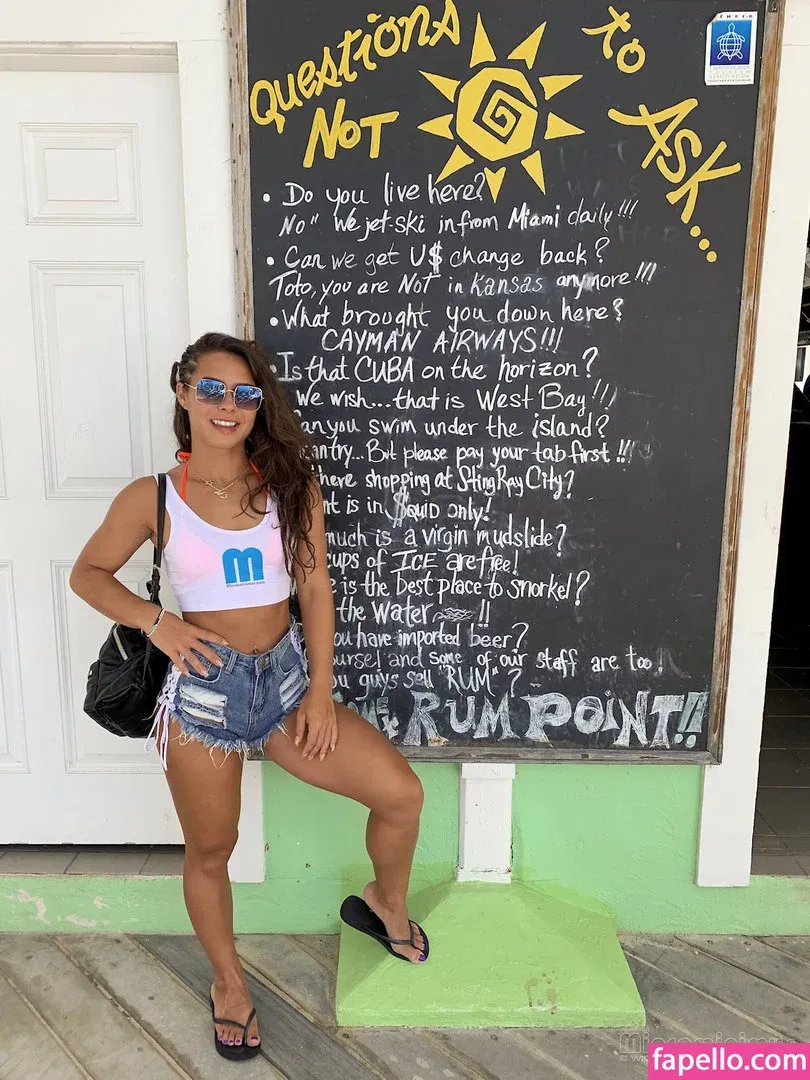 Questions
to
Not
Ask...
• Do you live here?
No" We jet-ski in from Miami daily!!!
• Can we get U$ change back?
Toto, you are Not in Kansas anymore!!!
• What brought you down here?
CAYMAN AIRWAYS!!!
• Is that CUBA on the horizon?
We wish... that is West Bay!!!
an you swim under the island?
antry... But please pay your tab first!!!
here shopping at StingRay City?
t is in $quid only!
much is a virgin mudslide?
cups of ICE are free!
e is the best place to snorkel?
the Water !!
ou have imported beer?
ourse! and some of our staff are too!
u guys sell "RUM"?
RUM POINT!!
m
fapello.com